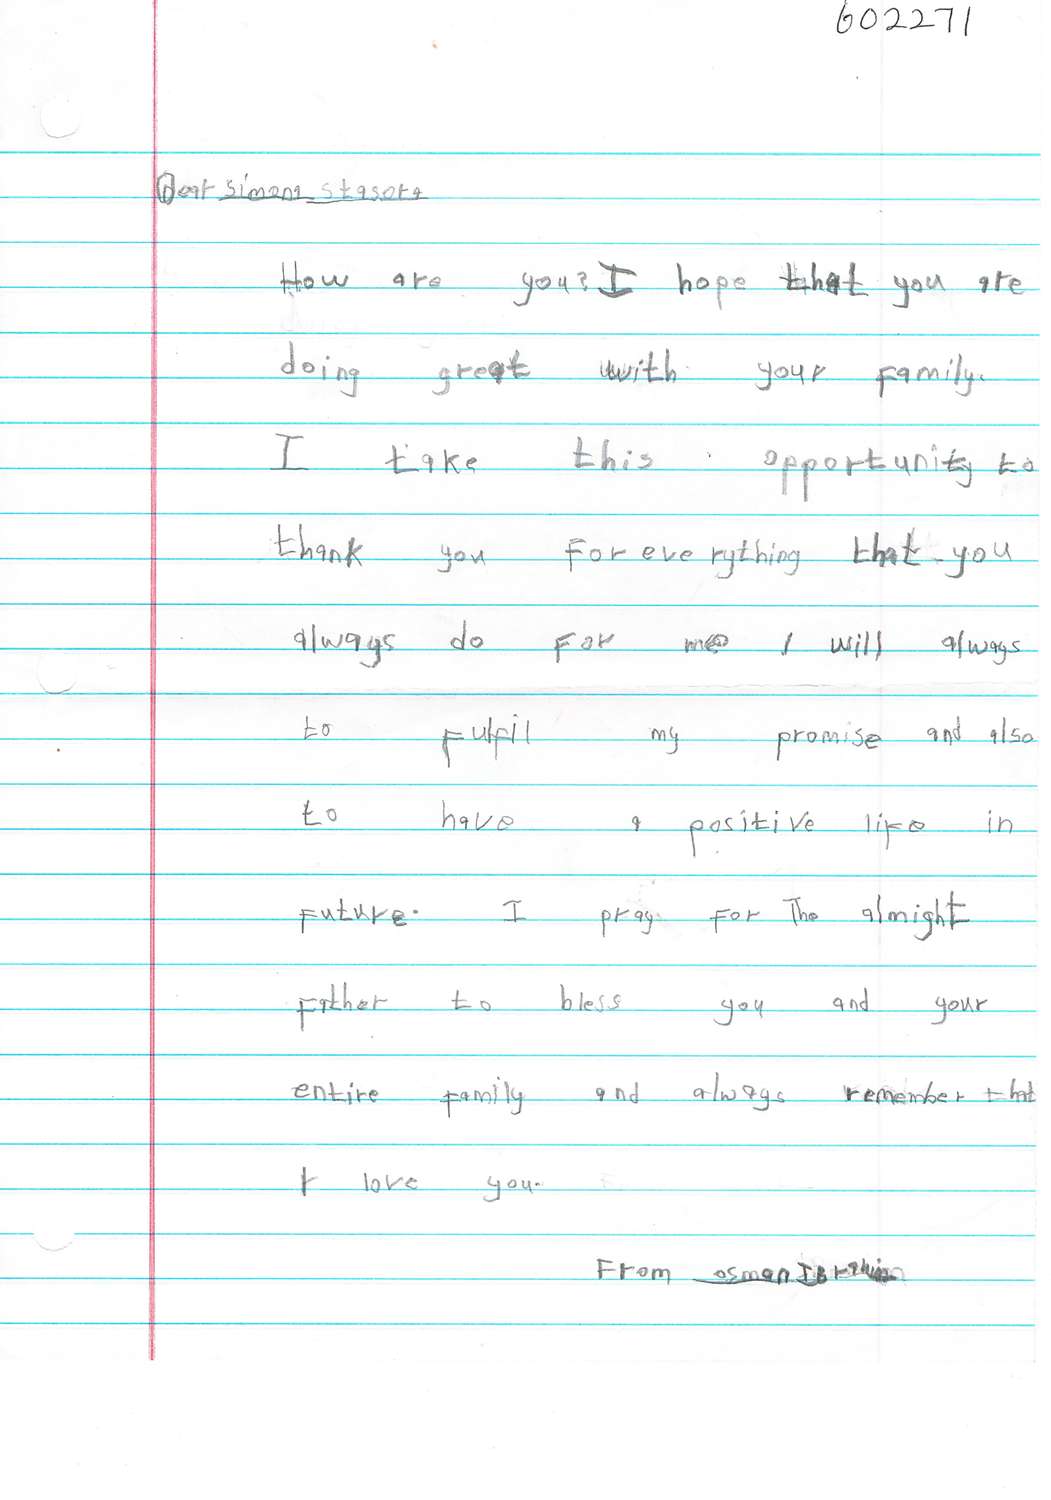 602271
Dear simona stasora
How are you? I hope that you are
doing great with your family.
I take this opportunity to
thank you for everything that you
always do for me I will always
to fulfil my promise and also
to have a positive life in
future. I pray for The almight
father to bless you and your
entire family and always remember that
I love you.
From osman Ibrahim